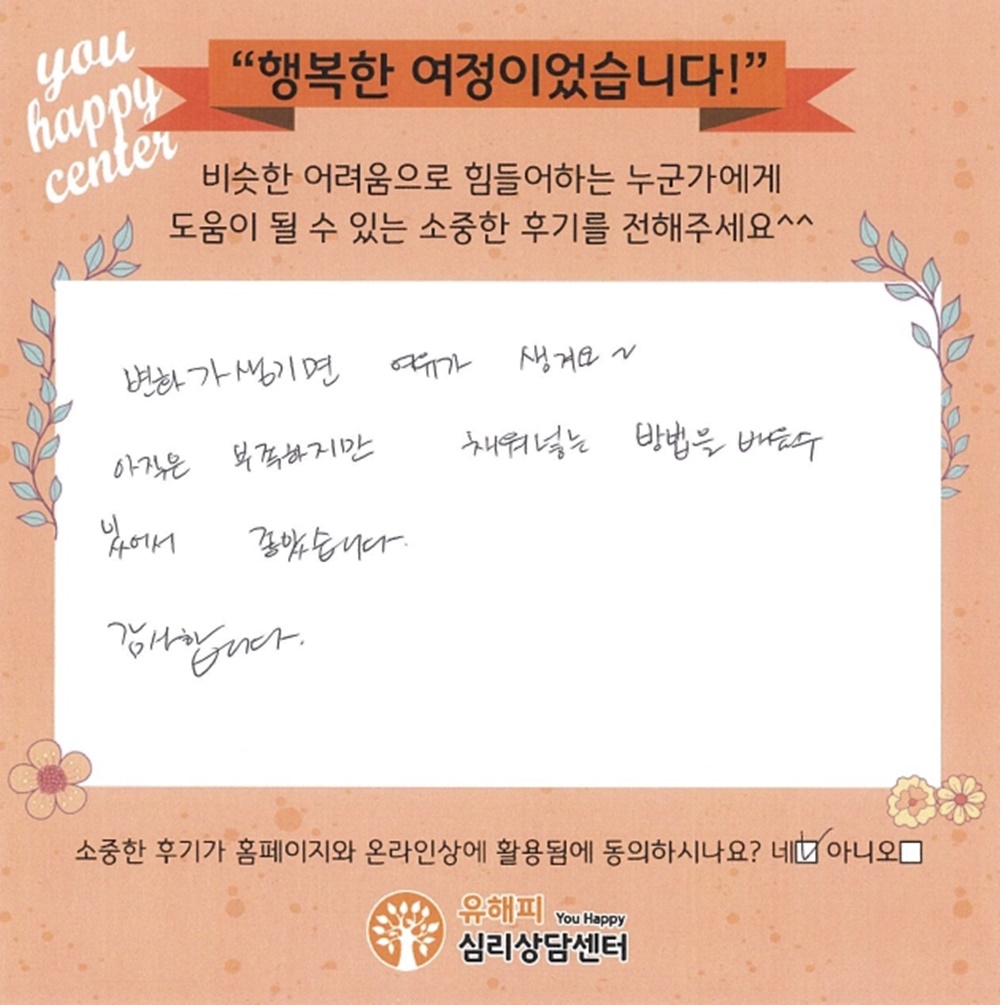 you
happy
center
“행복한 여정이었습니다!”
비슷한 어려움으로 힘들어하는 누군가에게
도움이 될 수 있는 소중한 후기를 전해주세요^^
변화가 생기면 여유가 생겨요~
아직은 부족하지만 채워넣는 방법을 배울수
있어서 좋았습니다.
감사합니다.
소중한 후기가 홈페이지와 온라인상에 활용됨에 동의하시나요? 네☑ 아니오☐
유해피 You Happy
심리상담센터